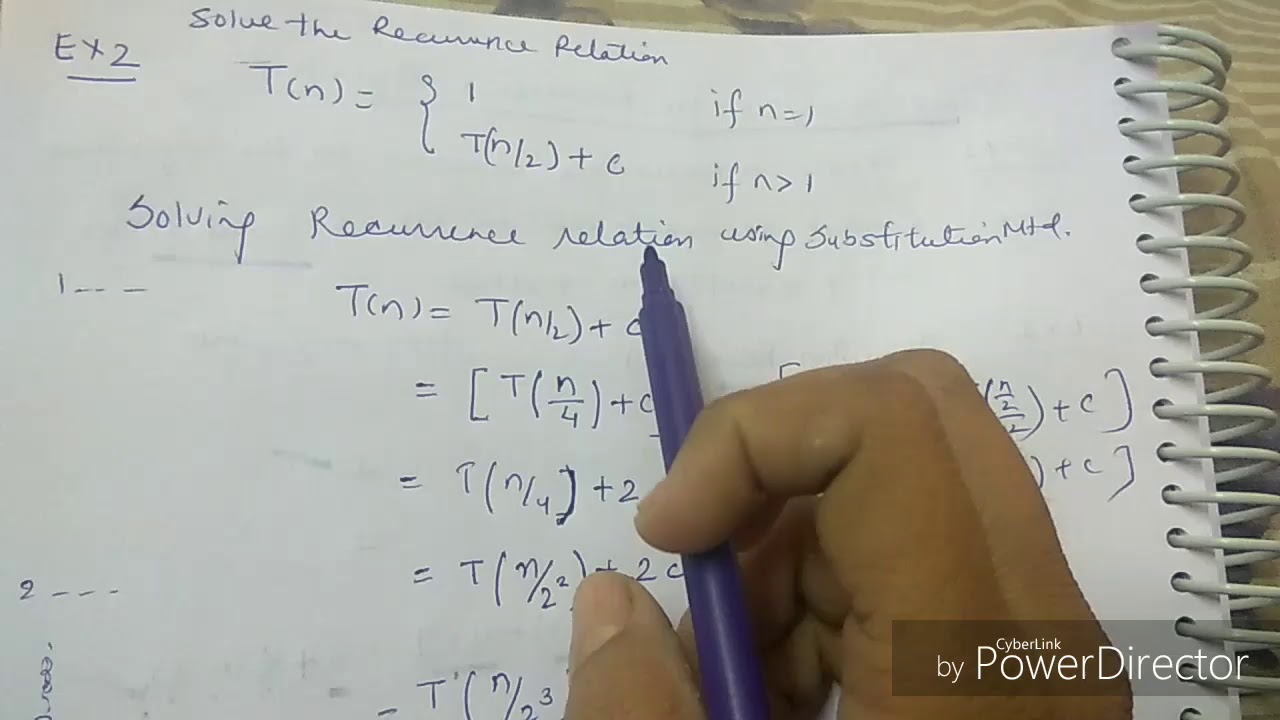 Solve the Recurrence Relation
Ex 2
T(n) = { 1 if n=1
T(n/2) + c if n>1
Solving Recurrence relation using Substitution Mtd.
1 - - - T(n) = T(n/2) + c
= [ T(n/4) + c (n/2/2) + c ]
= T(n/4] + 2 ) + c ]
2 - - - = T(n/2²) + 2c
= T(n/2³
CyberLink
by PowerDirector